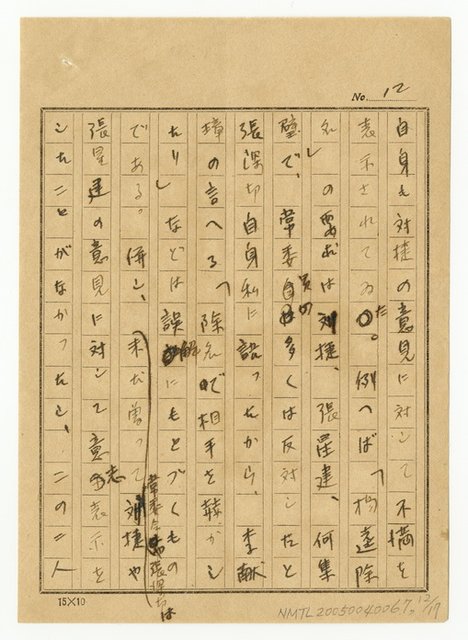 No. 12
自身も刘捷の意見に対して不満を
表示されてゐた。例へば「楊逵除
名」の要求は刘捷、張星建、何集
璧で、常委員の多くは反対したと
張深切自身私に語ったから、李献
璋の言へる「除名で相手を かし
たり」などは誤解にもとづくもの
である。併し、未だ曾って刘捷や
常委会や張深切は
張星建の意見に対して意志表示を
したことがなかったし、この二人
15×10
NMTL20050040067, 12/19